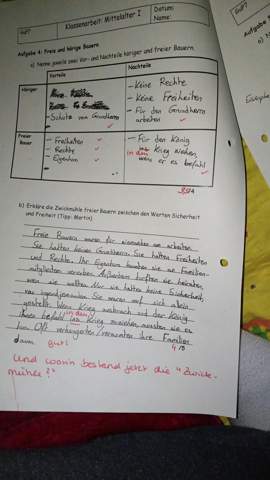 Klassenarbeit: Mittelalter I
Datum:
Name:
Aufgabe 4: Freie und hörige Bauern
a) Nenne jeweils zwei Vor- und Nachteile höriger und freier Bauern.
Vorteile
Nachteile
Höriger
- Schutz vom Grundherrn
- Keine Rechte
- Keine Freiheiten
- Für den Grundherrn
arbeiten
Freier
Bauer
- Freiheiten
- Rechte
- Eigentum
- Für den König
in den Krieg ziehen,
wenn er es befahl
b) Erkläre die Zwickmühle freier Bauern zwischen den Worten Sicherheit
und Freiheit (Tipp: Martin).
Freie Bauern waren für niemanden am arbeiten.
Sie hatten keinen Grundherrn. Sie hatten Freiheiten
und Rechte. Ihr Eigentum konnten sie an Familien-
mitglieder vererben. Außerdem durften sie heiraten,
wen sie wollten. Nur sie hatten keine Sicherheit,
von irgendjemanden. Sie waren auf sich allein
gestellt. Wenn Krieg ausbrach und der König
ihnen befahl in den Krieg zu ziehen, mussten sie es
tun. Oft verhungerten ihre Familien
dann. gut!
4/5
Und worin bestand jetzt die "Zwick-
mühle?"